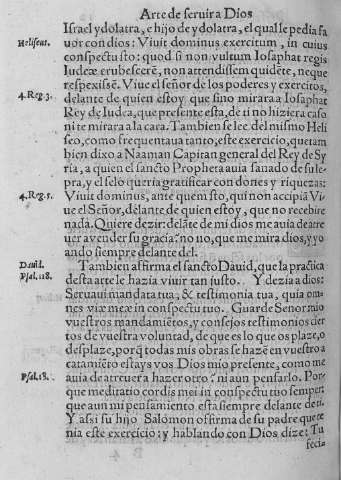 Arte de seruir a Dios
Israel ydolatra, e hijo de ydolatra, el qual le pedia fa
Heliseus.
uor con dios: Viuit dominus exercitum, in cuius
conspectu sto: quod si non vultum Iosaphat regis
Iudeæ erubescerẽ, non attendissem quidẽ te, neque
respexissẽ. Viue el señor de los poderes y exercitos,
4. Reg. 3.
delante de quien estoy que sino mirara a Iosaphat
Rey de Iudea, que presente esta, de ti no hiziera caso
ni te mirara a la cara. Tambien se lee del mismo Heli
seo, como frequentaua tanto, este exercicio, que tam
bien dixo a Naaman Capitan general del Rey de Sy
ria, a quien el sancto Propheta auia sanado de su le-
pra, y el selo queria gratificar con dones y riquezas:
4. Reg. 5.
Viuit dominus, ante quem sto, qui non accipiã Vi-
ue el Señor, delante de quien estoy, que no recibire
nada. Quiere dezir: delãte de mi dios me auia de atre
uer a vender su gracia? no uo, que me mira dios, y yo
ando siempre delante del.
Dauid.
Tambien affirma el sancto Dauid, que la practica
Psal. 118.
desta arte le hazia viuir tan justo. Y dezia a dios:
Seruaui mandata tua, & testimonia tua, quia om-
nes viæ meæ in conspectu tuo. Guarde Senor mio
vuestros mandamiẽtos, y consejos testimonios cier
tos de vuestra voluntad, de que es lo que os plaze, o
desplaze, porq̃ todas mis obras se hazẽ en vuestro a
catamiẽto estays vos Dios mio presente, como me
auia de atreuer a hazer otro? ni aun pensarlo. Por-
Psal. 18.
que meditatio cordis mei in conspectu tuo semper:
que aun mi pensamiento esta siempre delante de ti.
Y assi su hijo Salomon o firma de su padre que te
nia este exercicio: y hablando con Dios dize: Tu
fecis